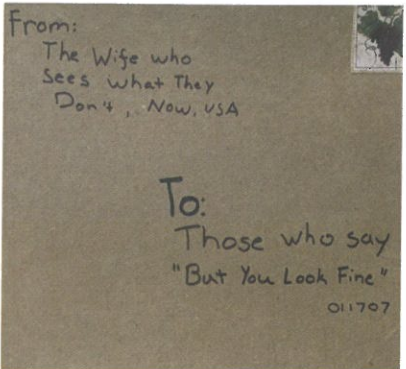 From:
The Wife who
Sees What They
Don't, Now, USA
To:
Those who say
"But You Look Fine"
011707